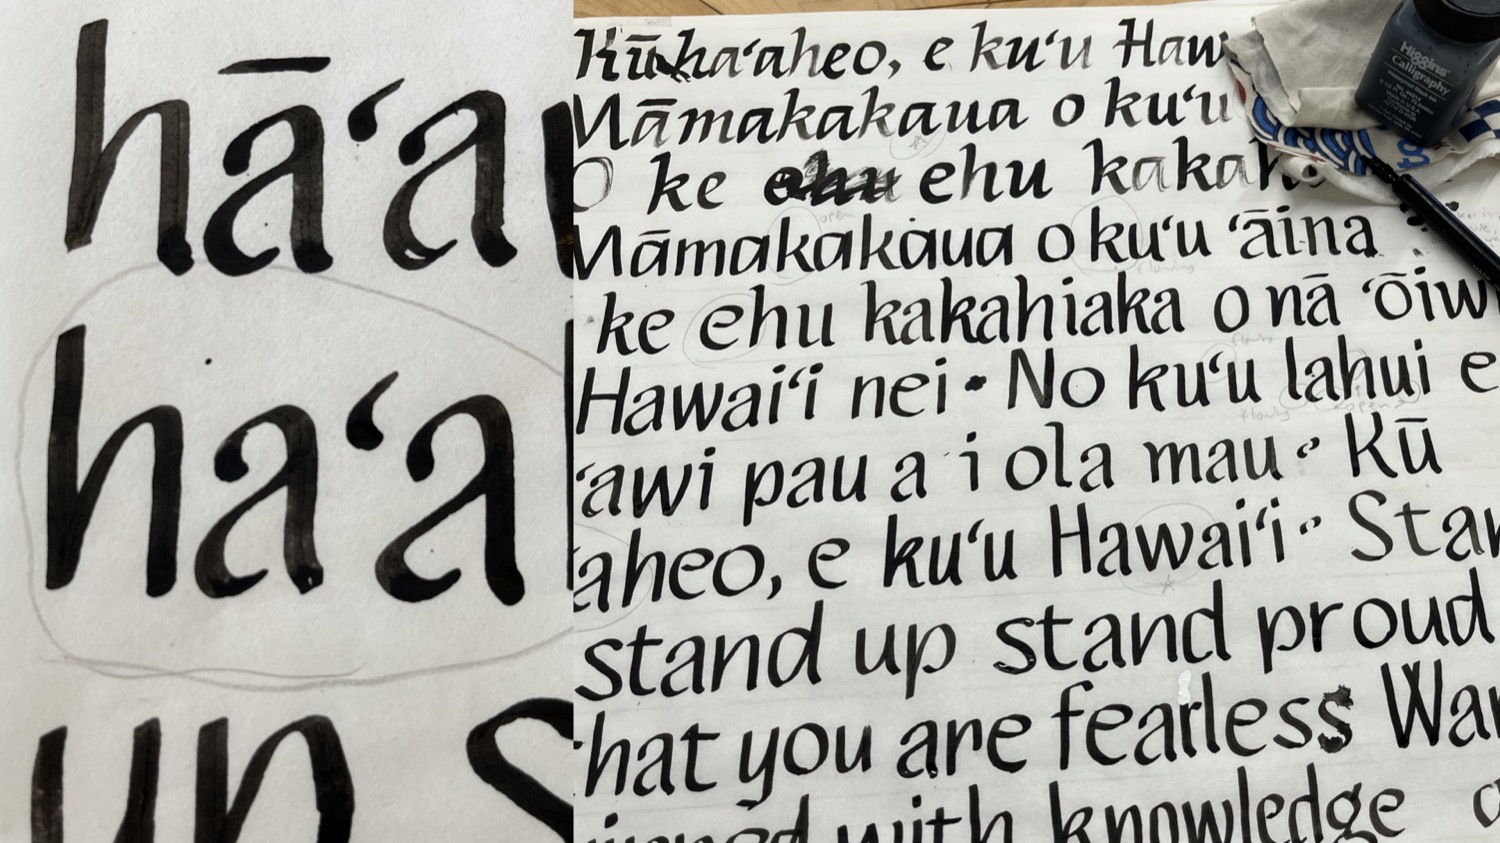 hā‘a
ha‘a
up s
Kū ha‘aheo, e ku‘u Haw
Māmakakaua o ku‘u
O ke ehu ehu kakah
Māmakakaua o ku‘u ‘āina
ke ehu kakahiaka o nā ‘ōiw
Hawai‘i nei • No ku‘u lahui e
‘awi pau a i ola mau • Kū
aheo, e ku‘u Hawai‘i • Star
stand up stand proud
that you are fearless War
with knowledge
Higgins
Calligraphy
open
flowing
flowing
flowing
open